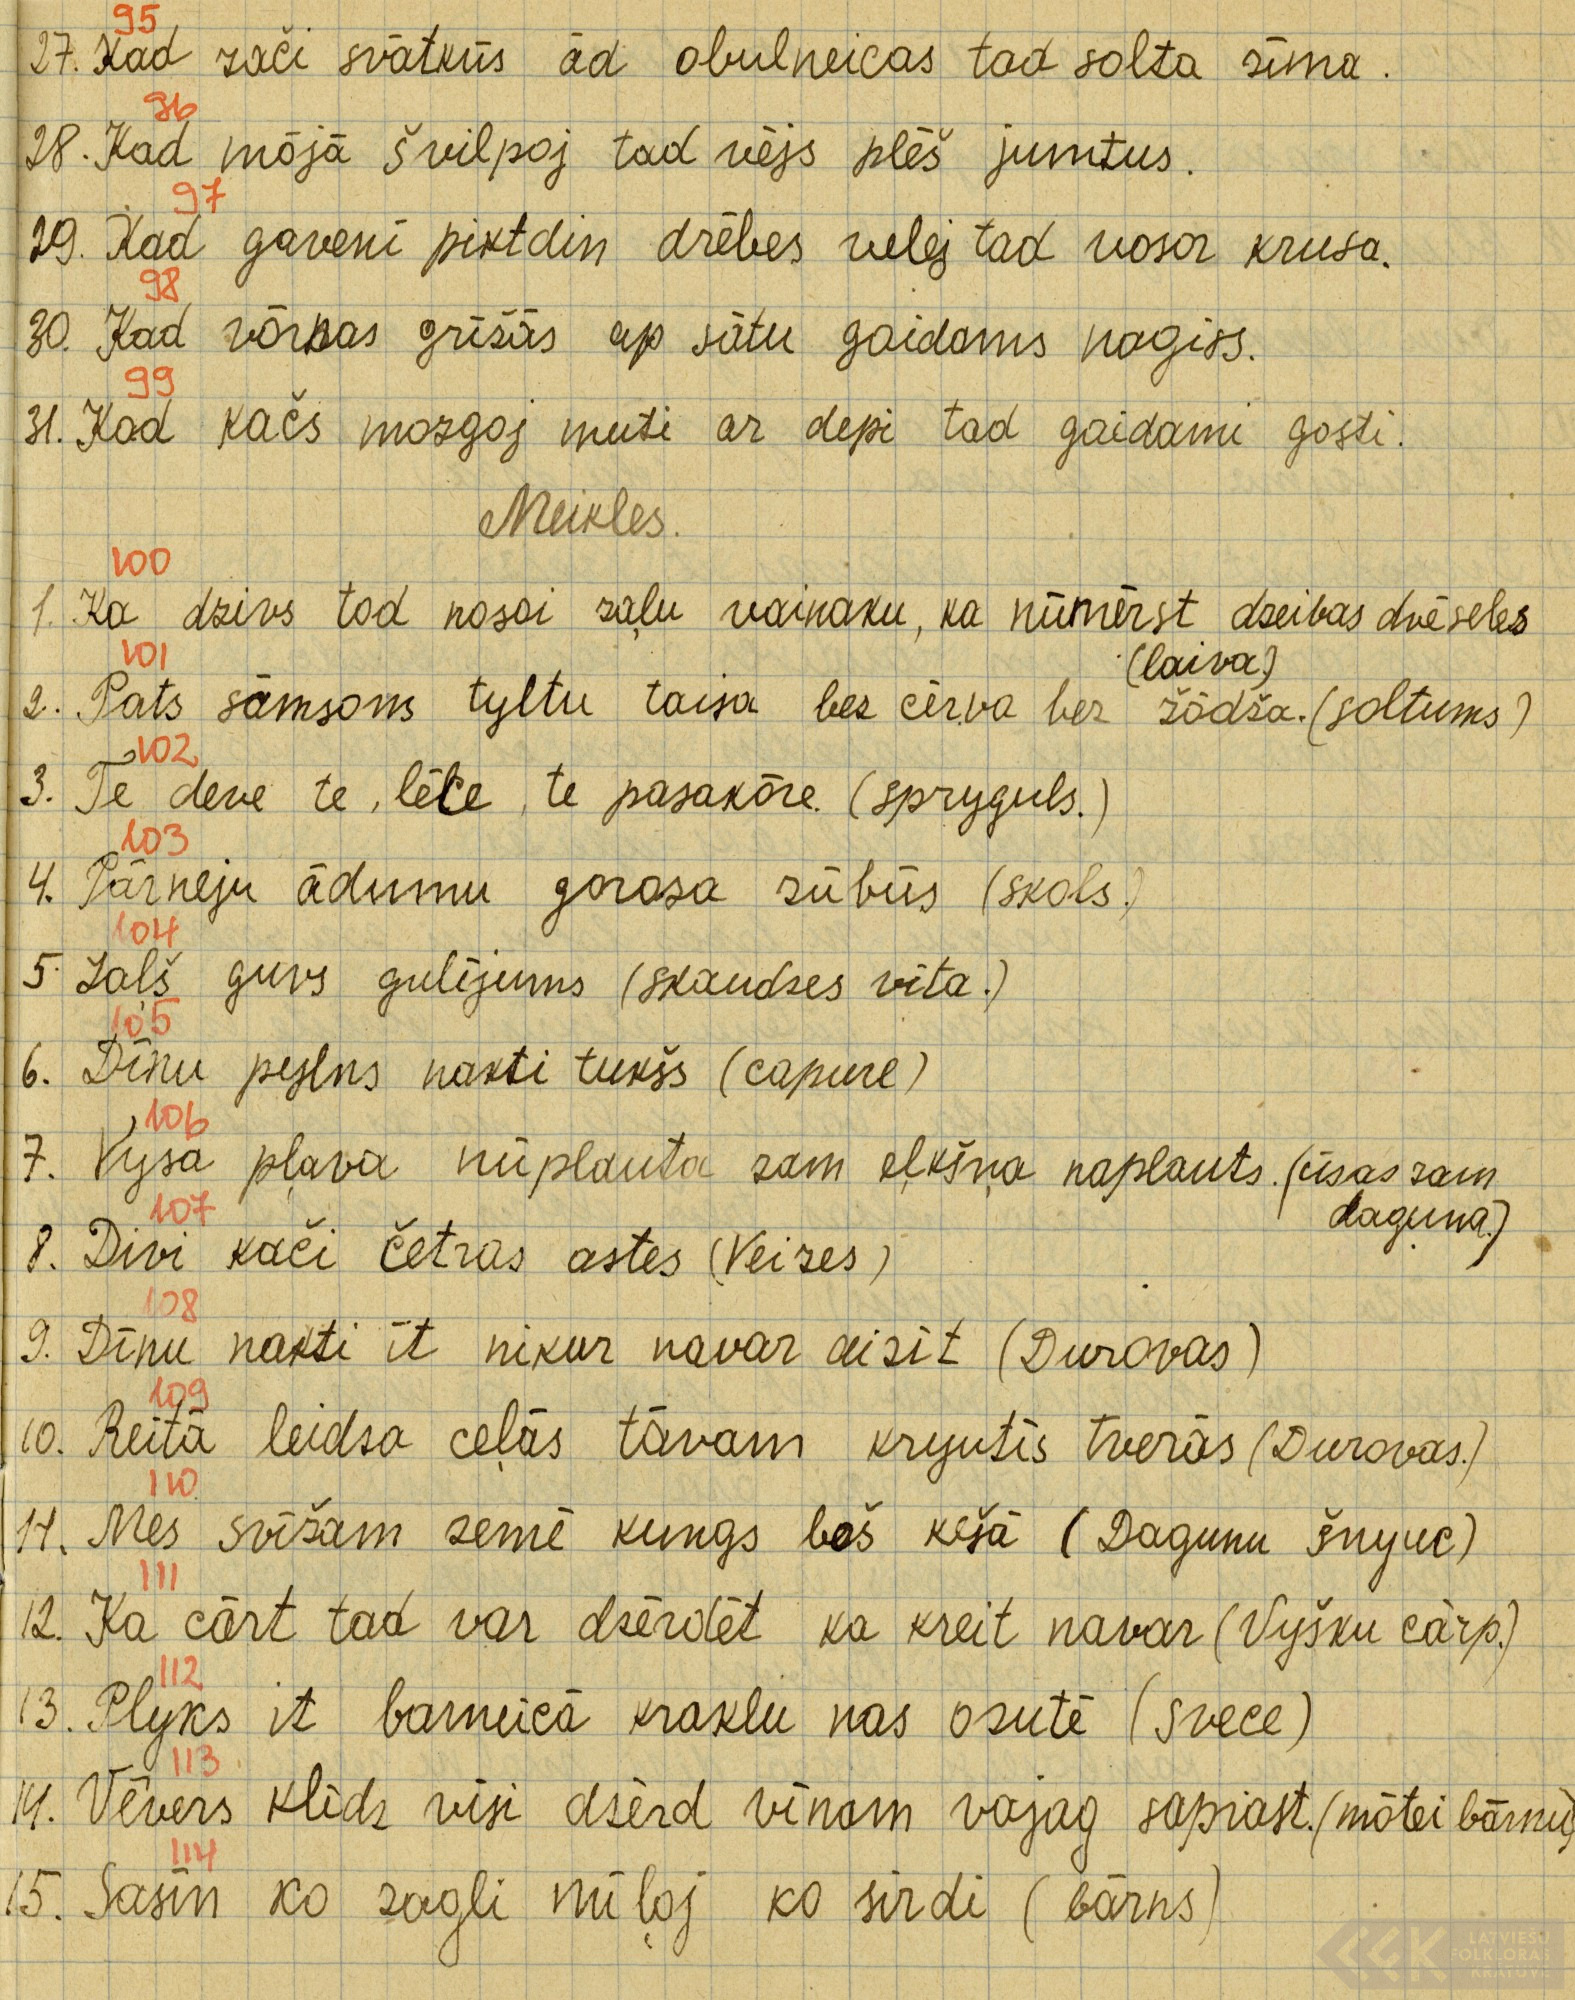 95
27. Kad zači svātkūs ād obulneicas tad solta zīma.
96
28. Kad mōjā švilpoj tad vējs plēš jumtus.
97
29. Kad gavenī piktdin drēbes velej tad vosor krusa.
98
30. Kad vōrnas grīžās ap sātu gaidams nagiss.
99
31. Kad kačs mozgoj muti ar depi tad gaidami gosti.
Meikles.
100
1. Ka dzivs tod nosoi zaļu vainaku, ka nūmērst dzeibas dvēseles
(laiva)
101
2. Pats sāmsons tyltu taisa bez cērva bez žōdža. (soltums)
102
3. Te deve te, lēce, te pasakōre. (spryguls.)
103
4. Pārneju ādumu gorosa zūbūs (skols.)
104
5. Zaļš guvs gulējums (skaudzes vīta.)
105
6. Dīnu pylns nakti tukšs (capure)
106
7. Vysa pļava nūplauta zam eļkšņa naplauts. (ūsas zam
daguna.)
107
8. Divi kači četras astes (Veizes)
108
9. Dīnu nakti īt nikur navar aizīt (Durovas)
109
10. Reitā leidza ceļās tāvam kryutīs tverās (Durovas.)
110
11. Mes svīžam zemē kungs bōš kešā (Dagunu šnyuc)
111
12. Ka cārt tad var dzērdēt ka kreit navar (Vyšku cārp.)
112
13. Plyks it barneicā kraklu nas ozutē (svece)
113
14. Vēvers klīdz vīsi dzērd vīnam vajag sapriast. (mōtei bārnu)
114
15. Sasīn ko zagli mīļoj ko sirdi (bārns)
LATVIEŠU
FOLKLORAS
KRĀTUVE